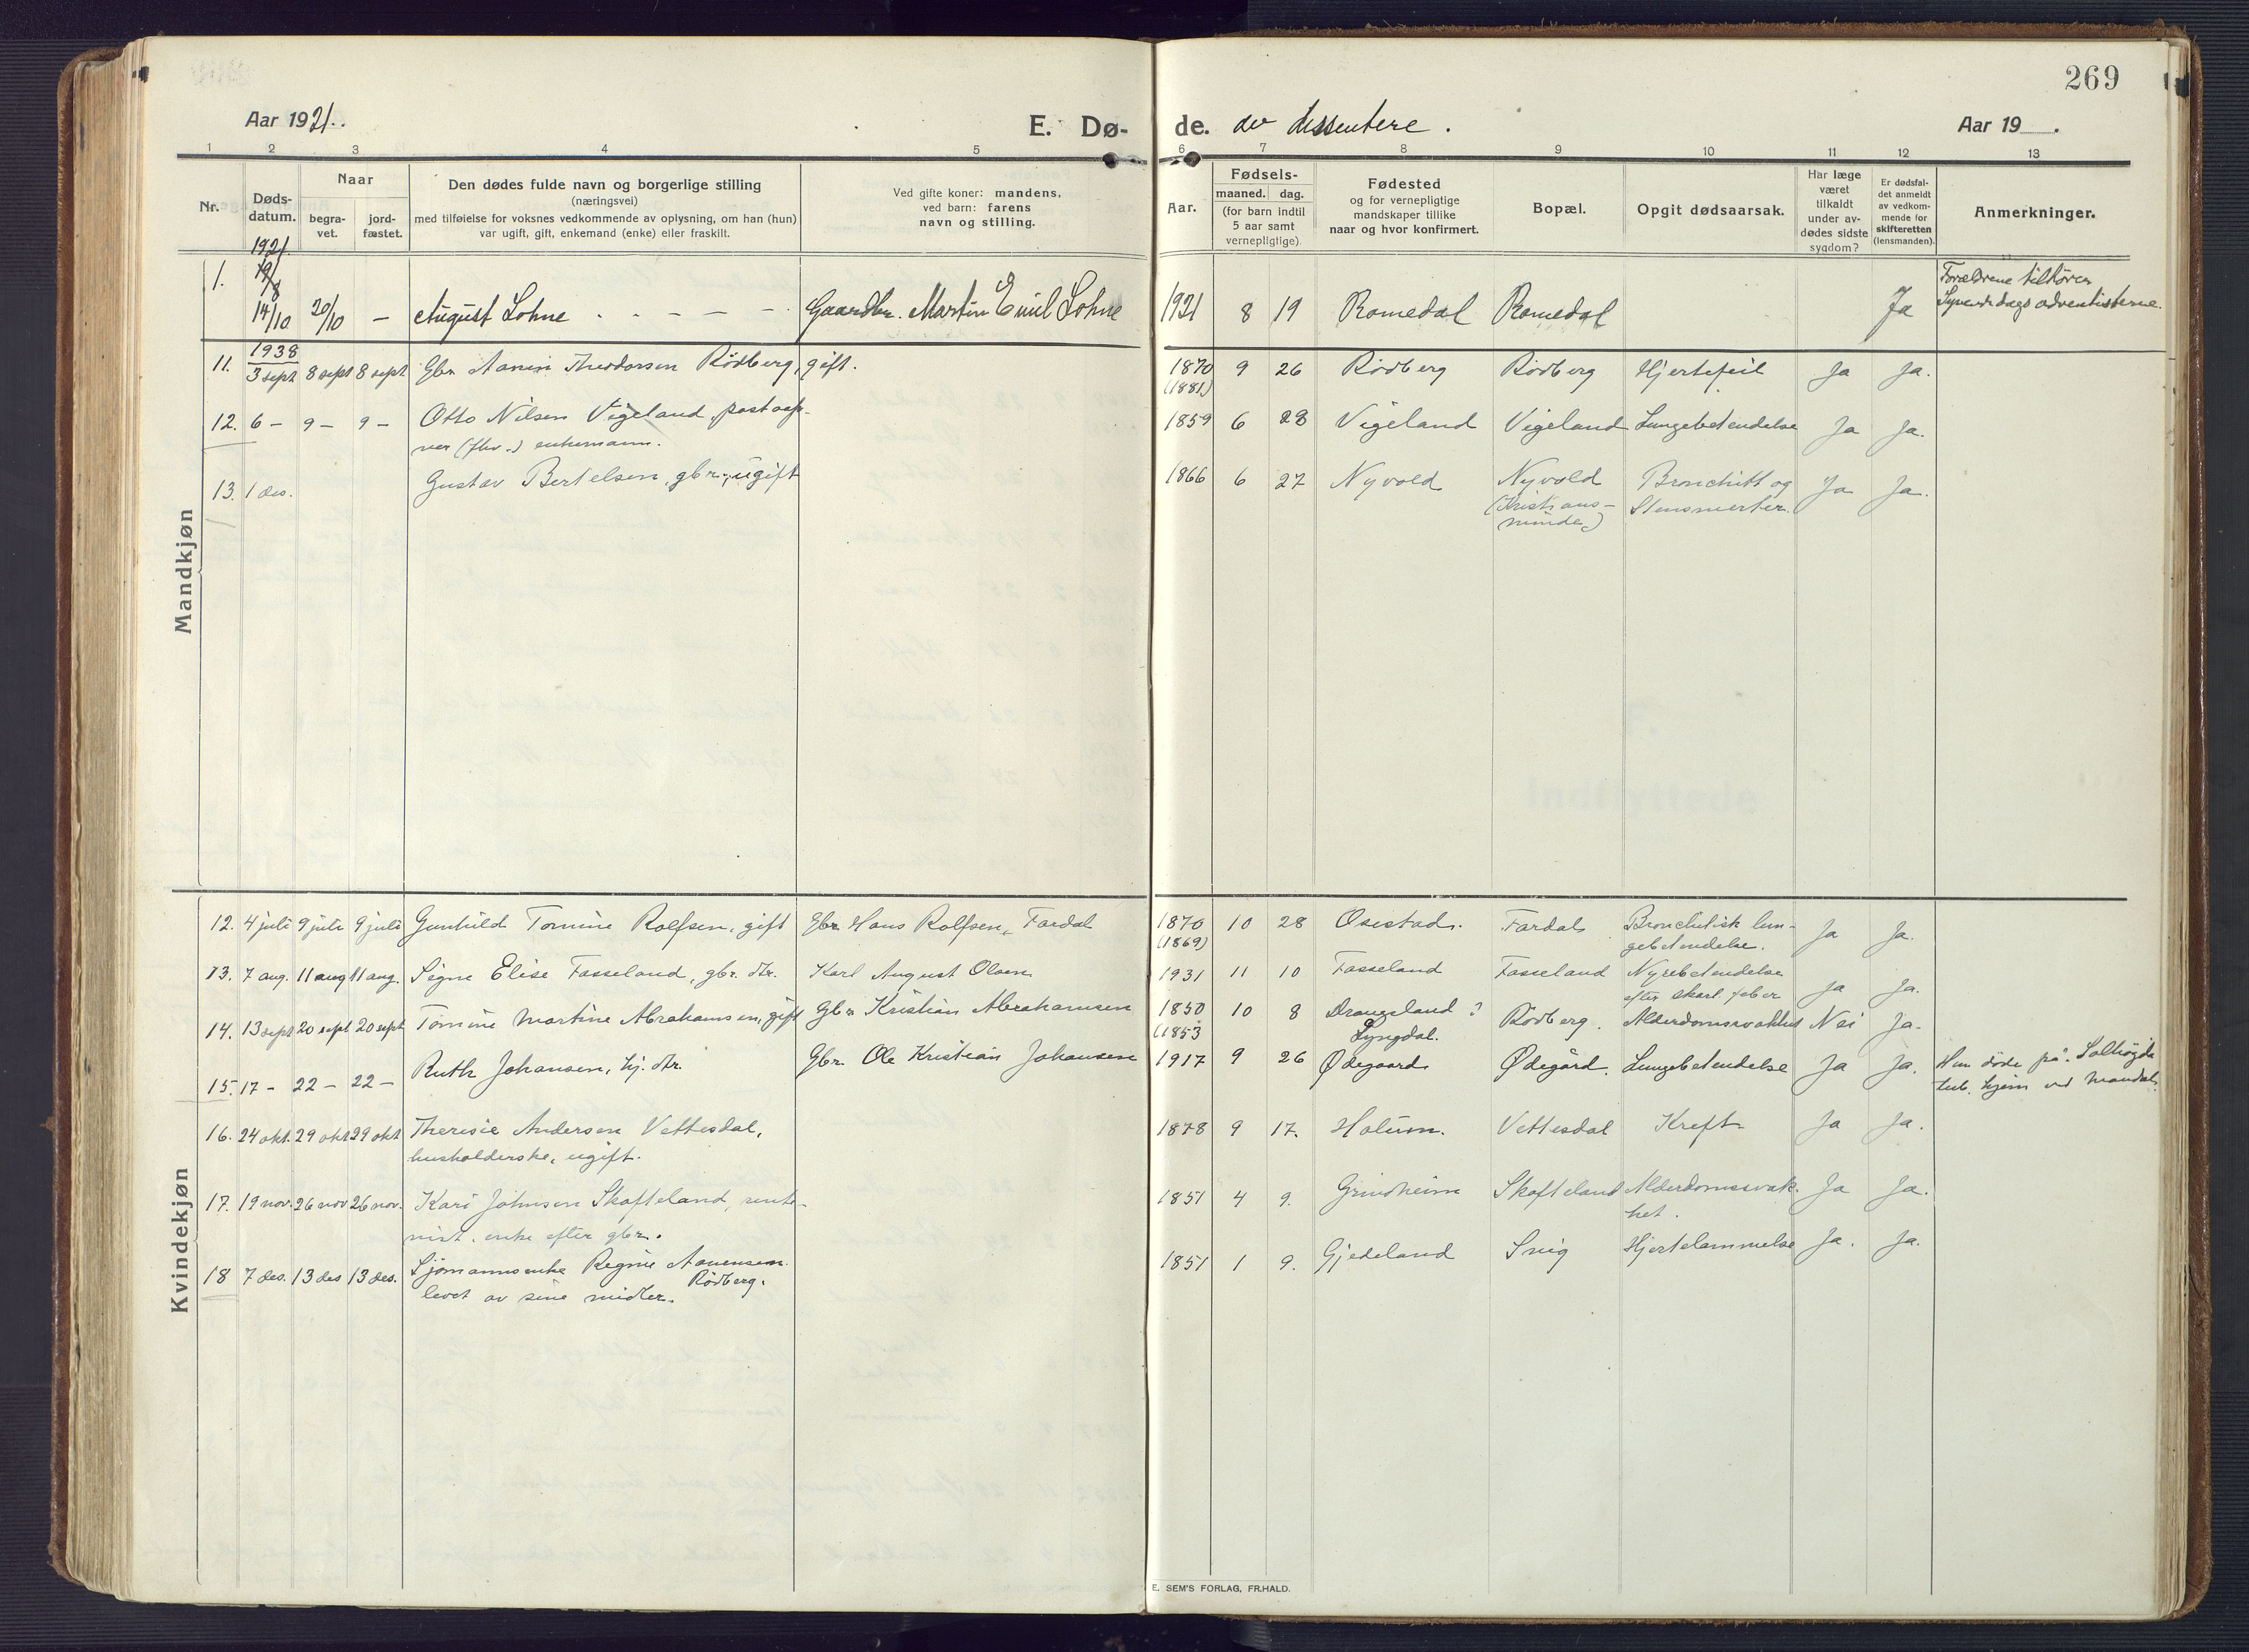 269
Aar 1921.
E. Dø-
de. der dissentere.
Aar 19 .
1 2 3 4 5 6 7 8 9 10 11 12 13
Nr.
Døds-
datum.
Naar
begra-
vet.
jord-
fæstet.
Den dødes fulde navn og borgerlige stilling
(næringsvei)
med tilføielse for voksnes vedkommende av oplysning, om han (hun)
var ugift, gift, enkemand (enke) eller fraskilt.
Ved gifte koner: mandens,
ved barn: farens
navn og stilling.
Aar.
Fødsels-
maaned. dag.
(for barn indtil
5 aar samt
vernepligtige)
Fødested
og for vernepligtige
mandskaper tillike
naar og hvor konfirmert.
Bopæl.
Opgit dødsaarsak.
Har læge
været
tilkaldt
under av-
dødes sidste
sygdom?
Er dødsfal-
det anmeldt
av vedkom-
mende for
skifteretten
(lensmanden).
Anmerkninger.
Mandkjøn
1921
1. 19/8
14/10 20/10 — August Lohne - - - - - Gaardbr. Martin Emil Lohne 1921 8 19 Romedal Romedal Ja Forældrene tilhører
Syvendedags adventisterne.
1938
11. 3 sept 8 sept 8 sept Gbr. Aanen Theodorsen Rödberg, gift. 1870 9 26 Rödberg Rödberg Hjertefeil Ja Ja.
(1881)
12. 6 — 9 — 9 — Otto Nilsen Vigeland, postaap- 1859 6 23 Vigeland Vigeland Lungebetendelse Ja Ja.
ner (fhv.) enkemann.
13. 1 des. Gustav Bertelsen, gbr., ugift 1866 6 27 Nyvold Nyvold Bronchitt og Ja Ja.
(Kristians-
minde) Stensmerter.
Kvindekjøn
12. 4 juli 9 juli 9 juli Gunhild Tomine Rolfsen, gift Gbr. Hans Rolfsen, Fardal 1870 10 28 Osestad. Fardal Bronchitisk lun- Ja Ja.
(1869) gebetendelse.
13. 7 aug. 11 aug 11 aug. Signe Elise Fasseland, gbr. dtr. Karl August Olsen 1931 11 10 Fasseland Fasseland Nyrebetendelse Ja Ja.
efter skarl. feber
14. 13 sept 20 sept 20 sept Tomine Martine Abrahamsen, gift Gbr Kristian Abrahamsen 1850 10 8 Drangeland ? Rödberg. Alderdomssvakhet Nei Ja.
(1853 Lyngdal.
15. 17 — 22 — 22 — Ruth Johansen, hj. dtr. Gbr. Ole Kristian Johansen 1917 9 26 Ødegaard Ødegård. Lungebetendelse Ja Ja. Hun døde på Solhøgda
tub. hjem ved Mandal.
16. 24 okt. 29 okt 29 okt Theresie Andersen Vettesdal, 1878 9 17. Holum. Vettesdal Kreft Ja Ja.
husholderske, ugift.
17. 19 nov. 26 nov 26 nov. Kari Johnsen Skofteland, rente- 1851 4 9. Grindheim Skofteland Alderdomssvak- Ja Ja.
nist, enke efter gbr. het.
18 7 des. 13 des 13 des. Sjømannsenke Regine Aanensen 1851 1 9. Gjedeland Snig Hjertelammelse Ja. Ja.
Rödberg.
levet av sine midler.
E. SEM'S FORLAG, FR.HALD.